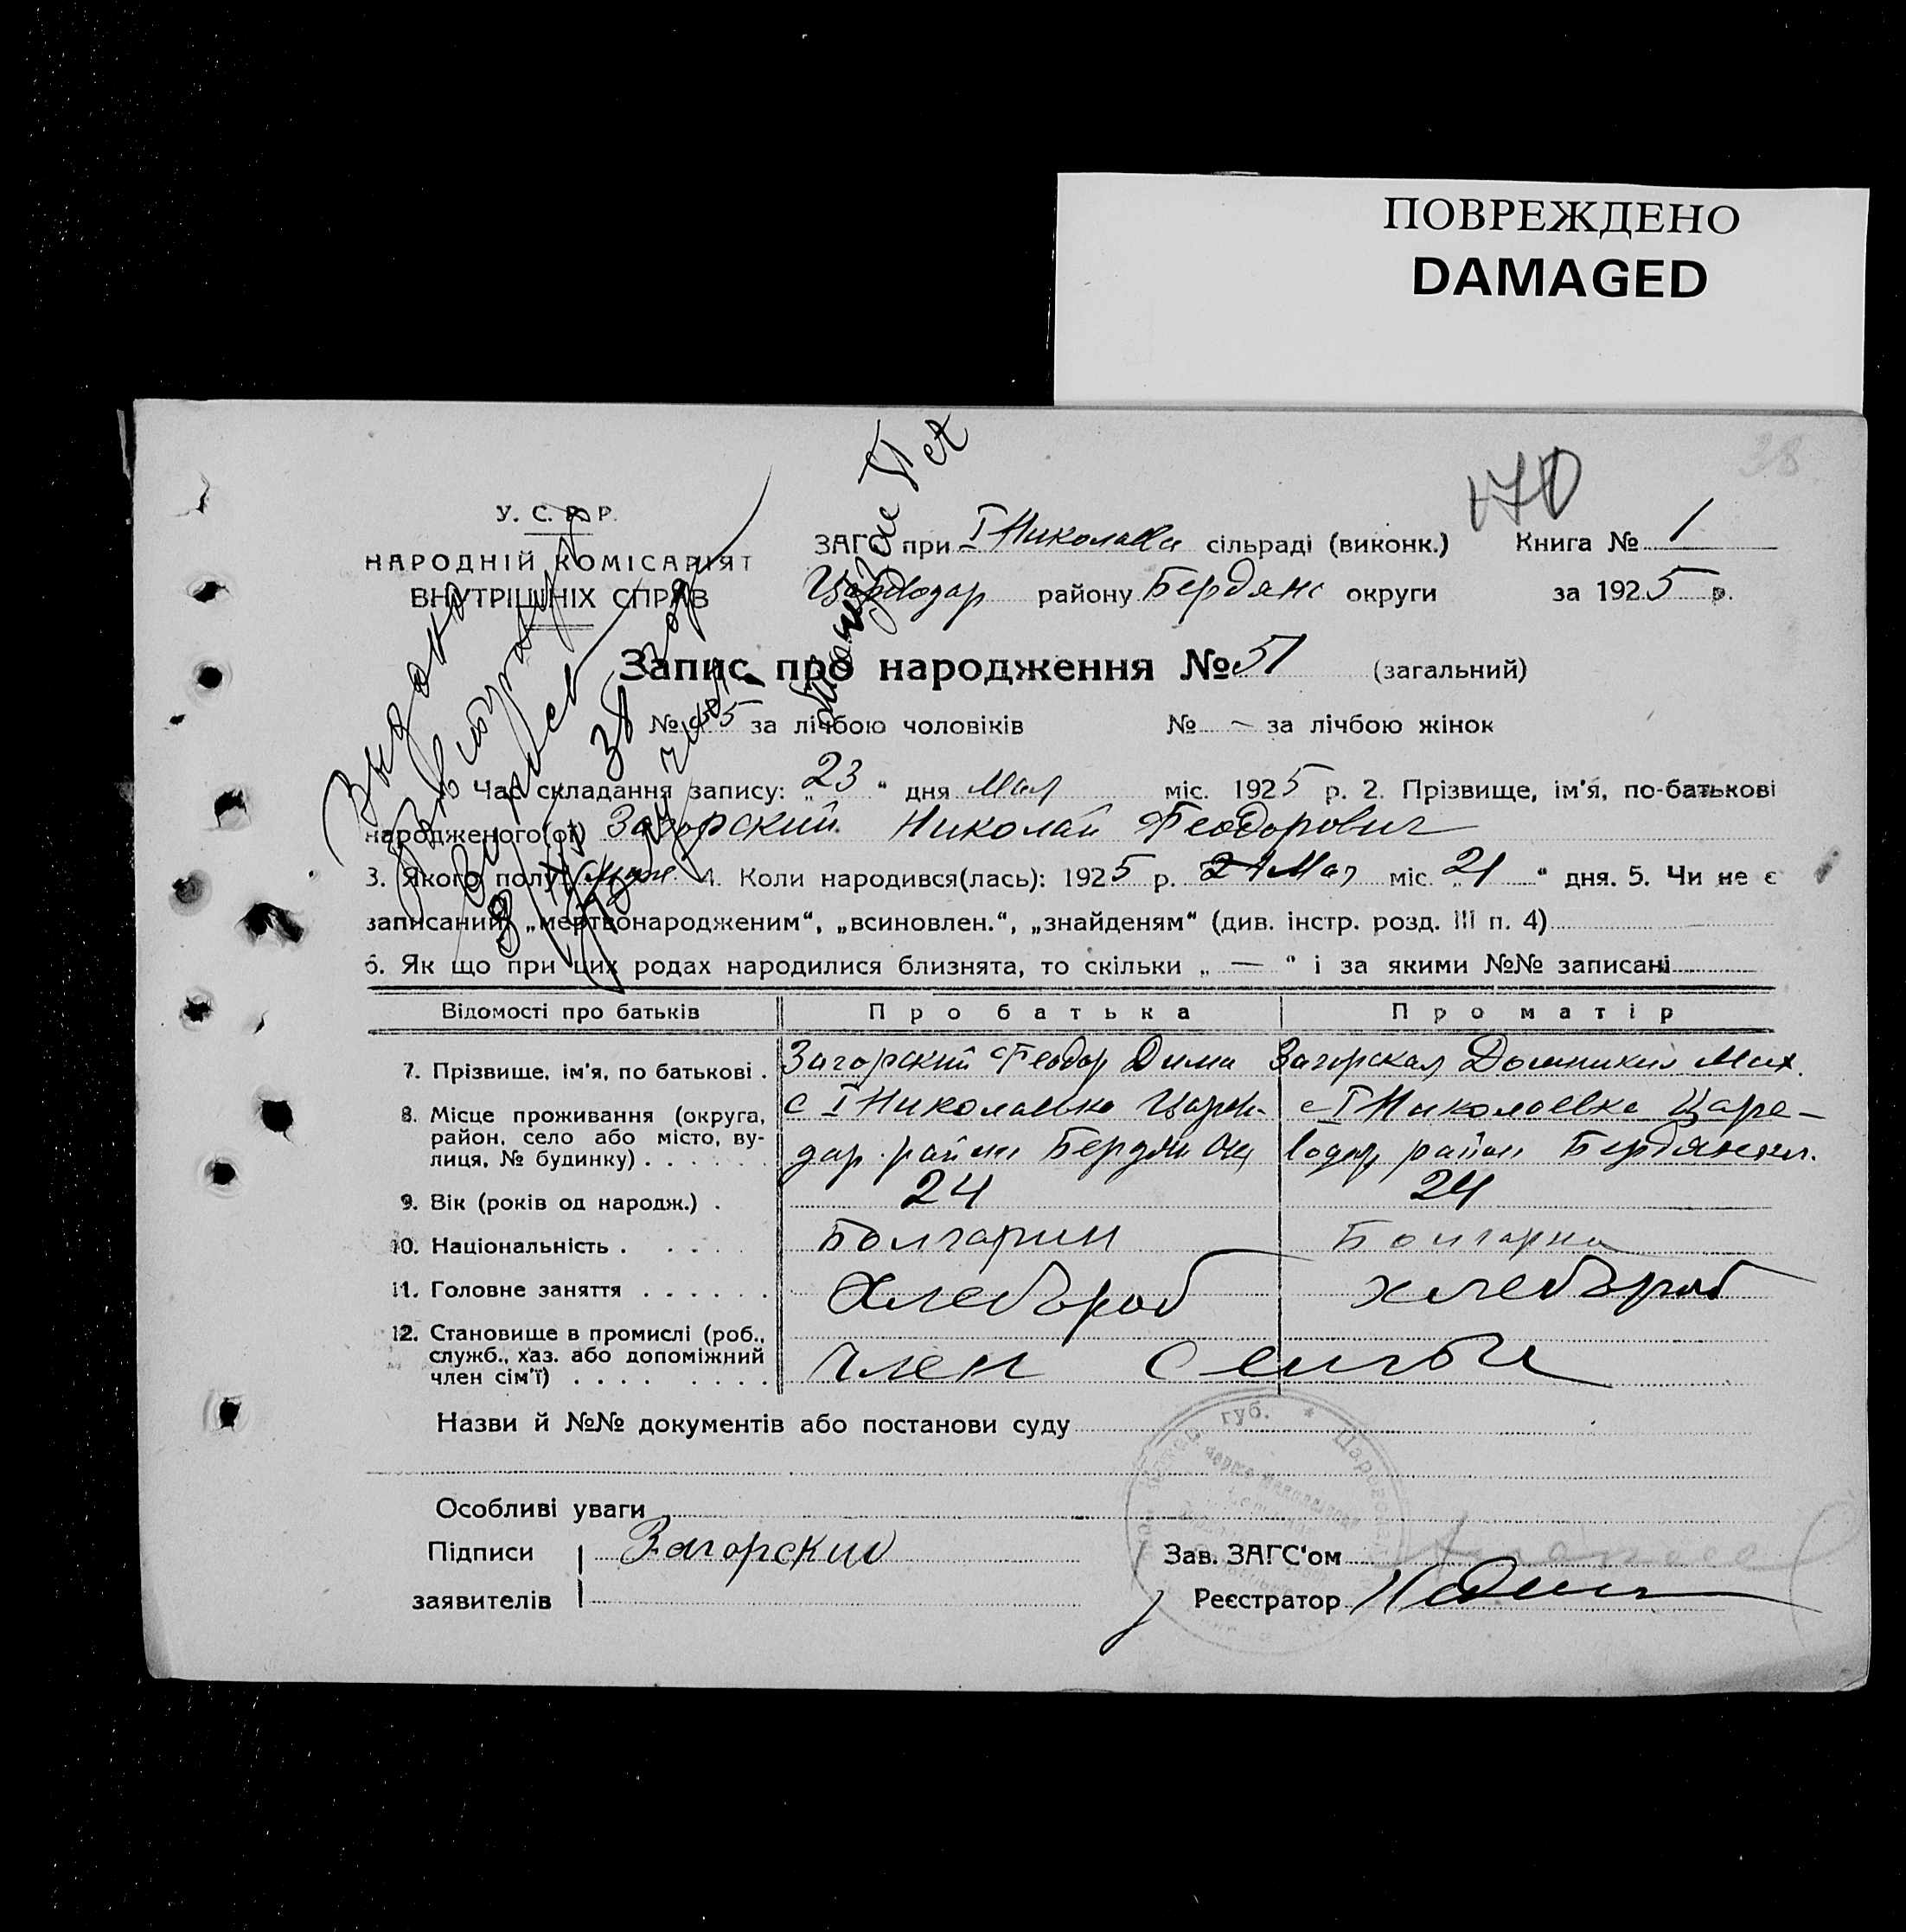 ПОВРЕЖДЕНО
DAMAGED
170
38
У. С. Р. Р.
НАРОДНІЙ КОМІСАРІЯТ
ВНУТРІШНІХ СПРАВ
ЗАГС при І Николаевк сільраді (виконк.) Книга № 1
Цареводар району Бердянс округи за 1925 р.
Запис про народження № 51 (загальний)
№ за лічбою чоловіків № — за лічбою жінок
Час складання запису: „23“ дня Мая міс. 1925 р. 2. Прізвище, ім'я, по-батькові
народженого(ої) Загорский Николай Феодорович
3. Якого полу: муж. 4. Коли народився(лась): 1925 р. 21 Мая міс. „21“ дня. 5. Чи не є
записаний „мертвонародженим“, „всиновлен.“, „знайденям“ (див. інстр. розд. III п. 4)
6. Як що при цих родах народилися близнята, то скільки „ — “ і за якими №№ записані
Відомості про батьків Про батька Про матір
7. Прізвище, ім'я, по батькові . Загорский Феодор Дими Загорская Мих.
8. Місце проживання (округа, с І Николаевка Царев- с І Николаевка Царе-
район, село або місто, ву-
лиця, № будинку) . . . . . . дар район Бердян Окр водар район
9. Вік (років од народж.) . 24 24
10. Національність . . . . . Болгарин Болгарка
11. Головне заняття . . . . . . Хлебороб хлебороб
12. Становище в промислі (роб.,
служб., хаз. або допоміжний
член сім'ї) . . . . . . . . член семьи
Назви й №№ документів або постанови суду
губ. * Царевода
Особливі уваги
Підписи Загорский Зав. ЗАГС'ом
заявителів Реєстратор
Выдано